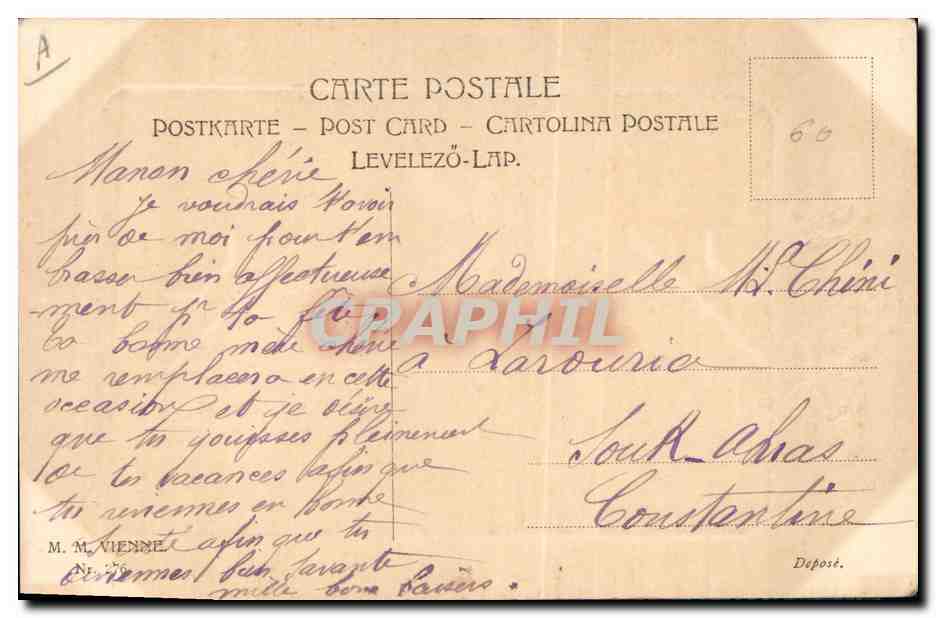 A
CARTE POSTALE
POSTKARTE – POST CARD – CARTOLINA POSTALE
LEVELEZŐ-LAP.
60
Manon chérie
Je voudrais t'avoir
près de moi pour t'em
brasser bien affectueuse
ment pr ta fête,
ta bonne mère chérie
me remplacera en cette
occasion et je désire
que tu jouisses pleinement
de tes vacances afin que
tu reviennes en bonne
santé afin que tu
deviennes bien savante
mille bons baisers.
Mademoiselle Md. Chini
a Zarouria
Souk-Ahras
Constantine
CPAPHIL
M. M. VIENNE.
Nr. 276
Déposé.